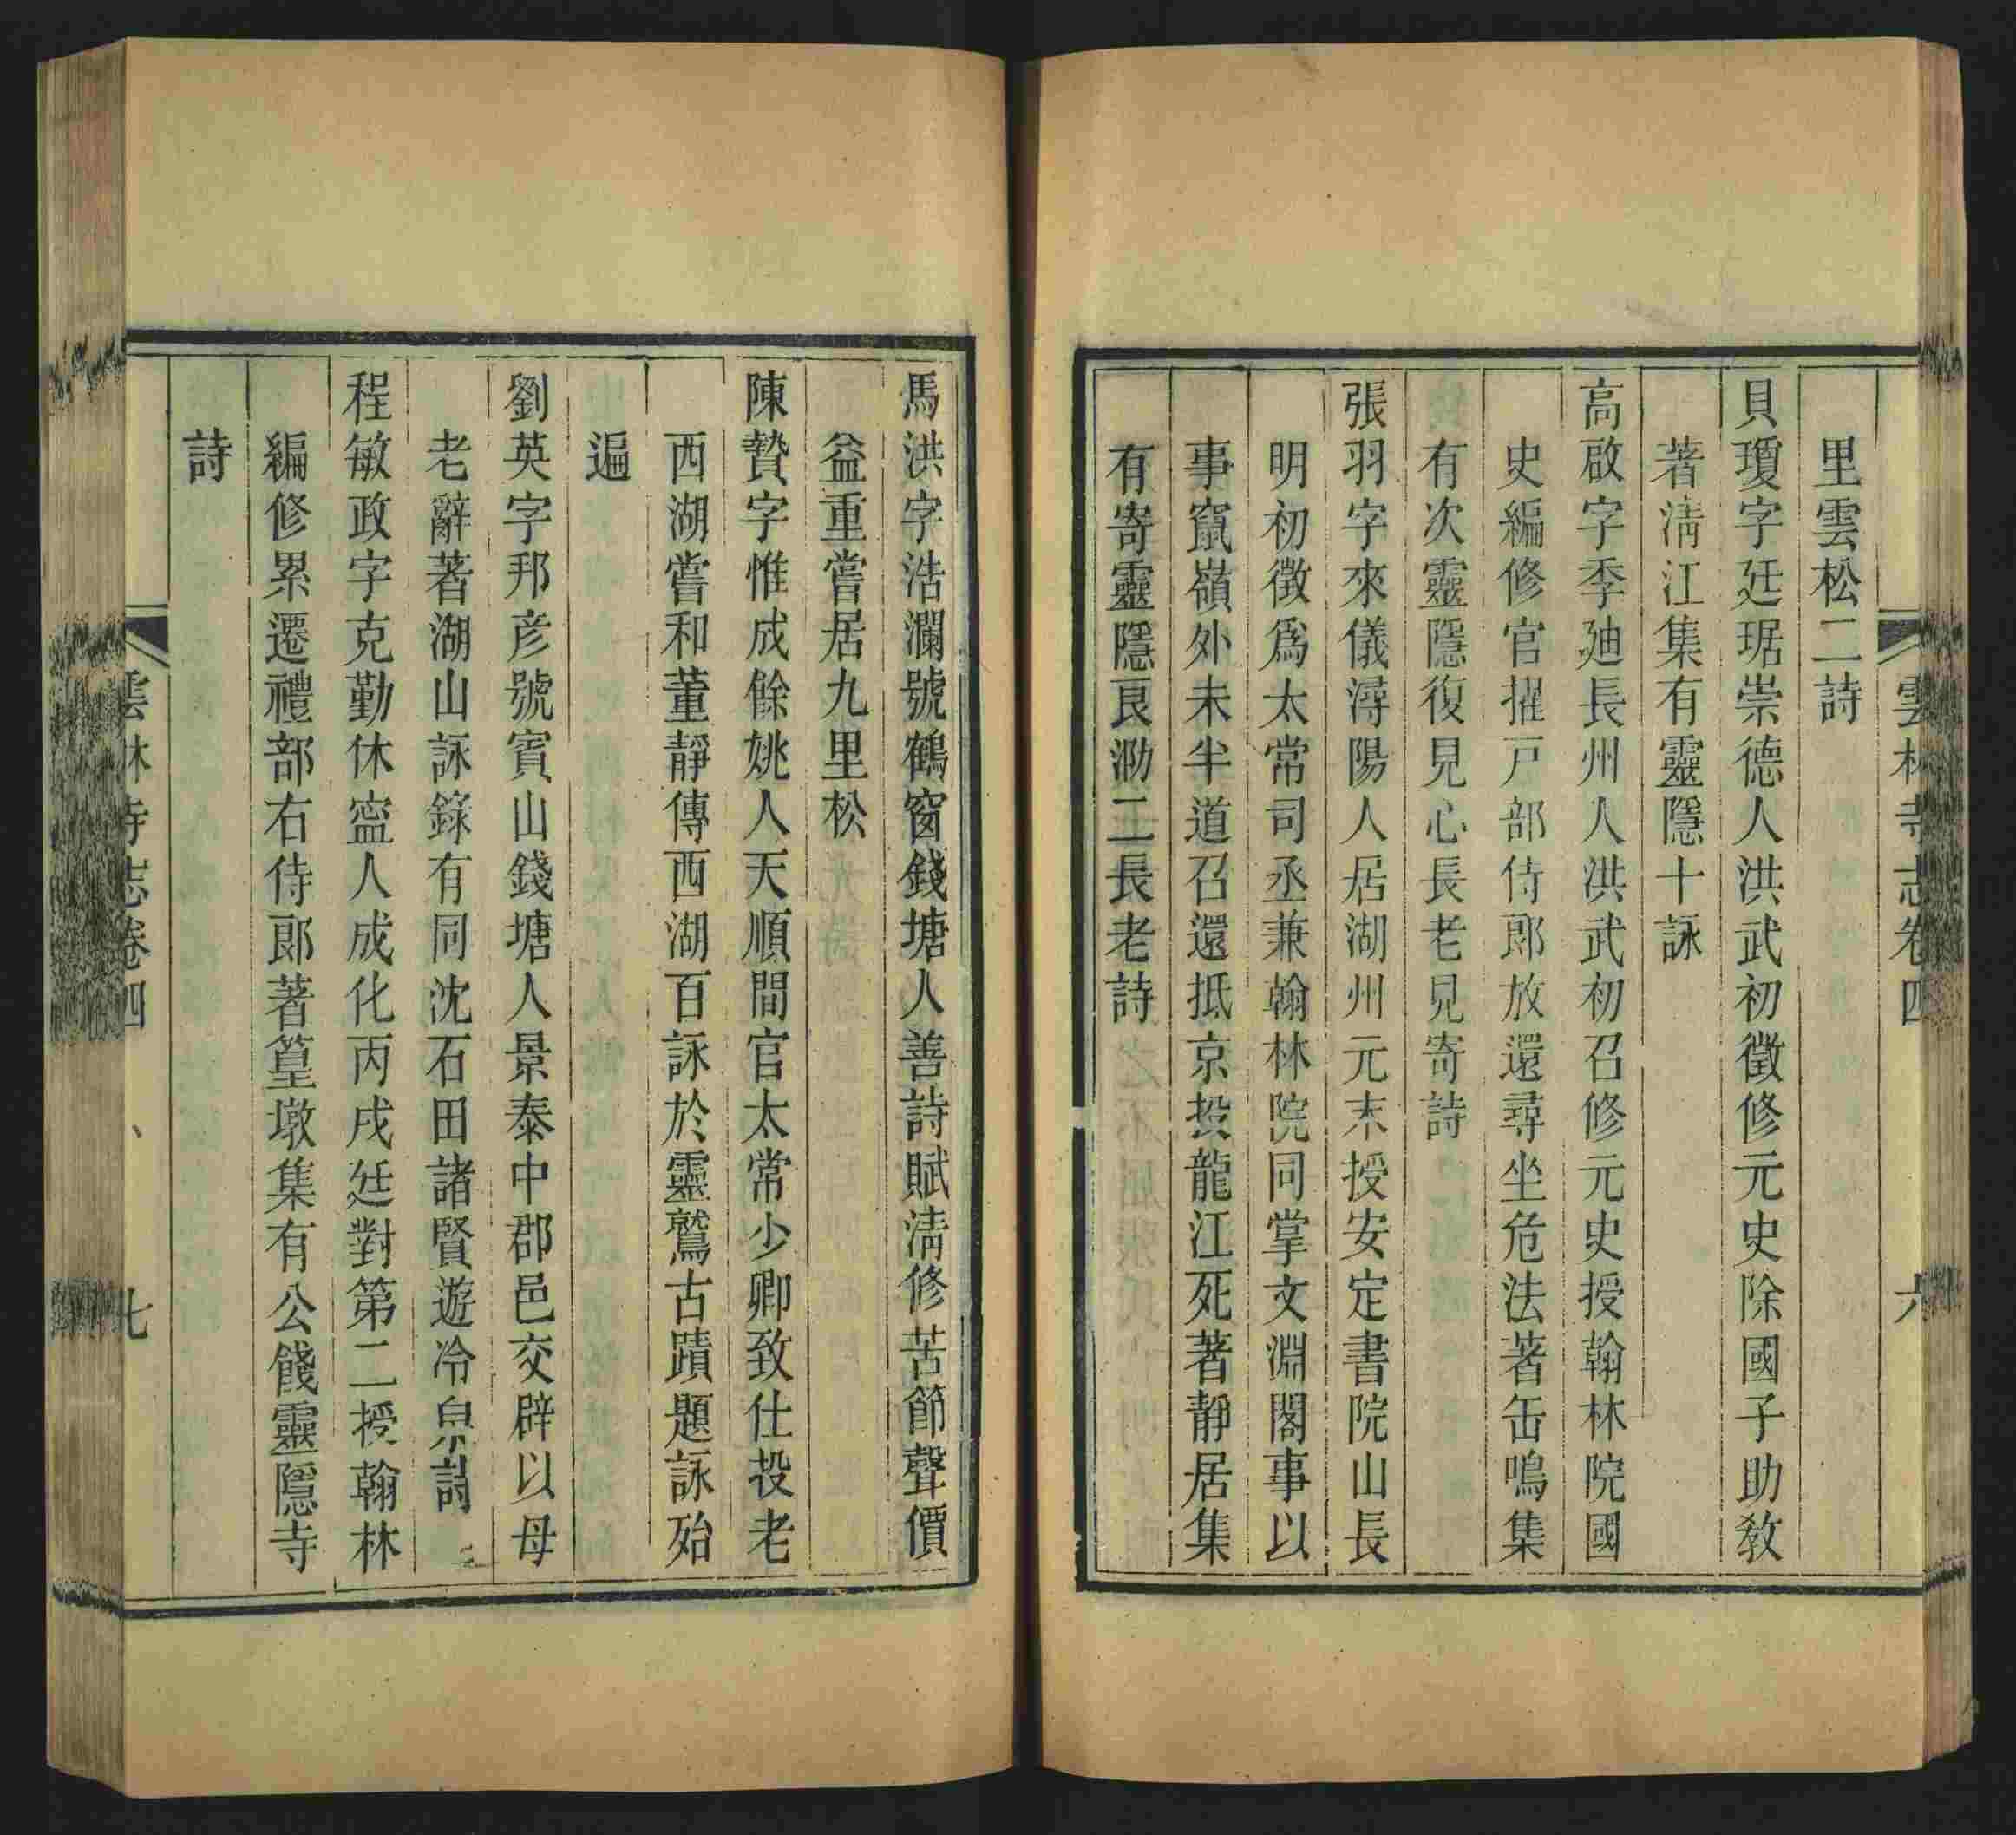 雲林寺志卷四
六
里雲松二詩
貝瓊字廷琚崇德人洪武初徵修元史除國子助敎
著淸江集有靈隱十詠
高啟字季廸長州人洪武初召修元史授翰林院國
史編修官擢戸部侍郎放還尋坐危法著缶鳴集
有次靈隱復見心長老見寄詩
張羽字來儀潯陽人居湖州元末授安定書院山長
明初徵爲太常司丞兼翰林院同掌文淵閣事以
事竄嶺外未半道召還抵京投龍江死著靜居集
有寄靈隱良泐二長老詩
馬洪字浩瀾號鶴窗錢塘人善詩賦淸修苦節聲價
益重嘗居九里松
陳贄字惟成餘姚人天順間官太常少卿致仕投老
西湖嘗和董靜傳西湖百詠於靈鷲古蹟題詠殆
遍
劉英字邦彥號賓山錢塘人景泰中郡邑交辟以母
老辭著湖山詠錄有同沈石田諸賢遊冷泉詩
程敏政字克勤休寍人成化丙戌廷對第二授翰林
編修累遷禮部右侍郎著篁墩集有公餞靈隱寺
詩
雲林寺志卷四
七